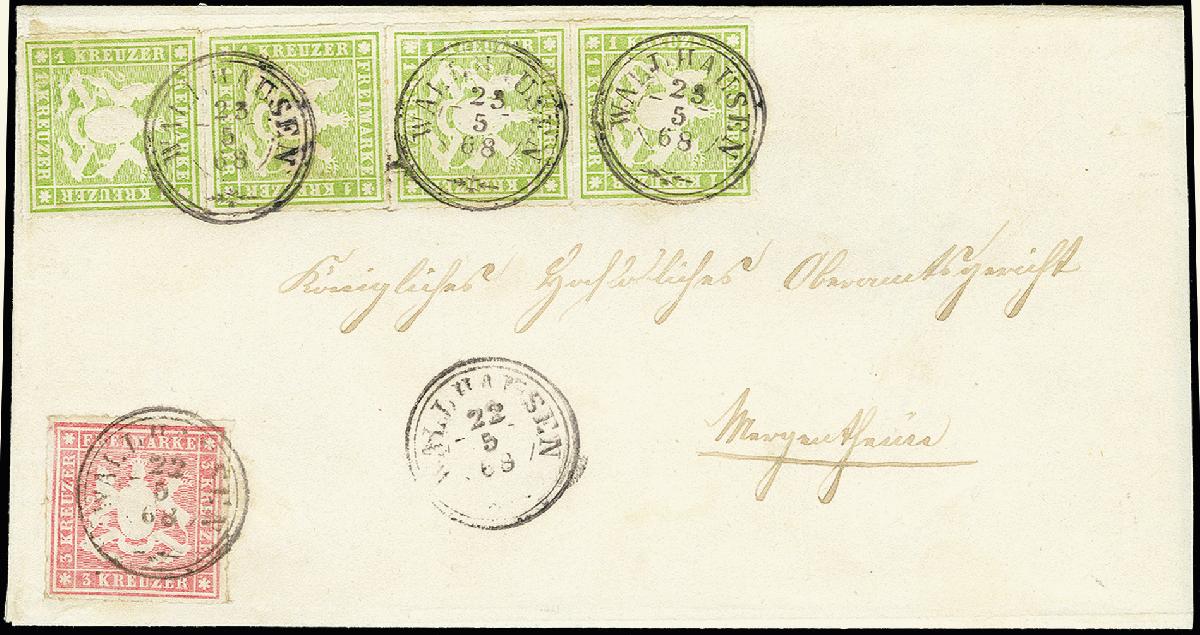 1 KREUZER FREIMARKE 1 KREUZER 1 KREUZER
1 KREUZER FREIMARKE 1 KREUZER
1 KREUZER
1 KREUZER
WALLHAUSEN
23
5
68
WALLHAUSEN
23
5
68
WALLHAUSEN
23
5
68
Königliches Hochlöbliches Oberamtsgericht
Mergentheim
WALLHAUSEN
22
5
68
FREIMARKE 3 KREUZER 3 KREUZER 3 KREUZER
WALLHAUSEN
22
5
68